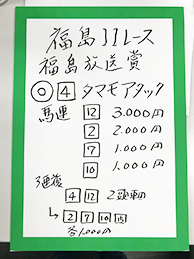 福島11レース
福島放送賞
◎ 4 タマモアタック
馬連 12 3.000円
2 2.000円
7 1.000円
10 1.000円
3連複
4 12 2頭軸
↳ 2 7 10 15
各1,000円